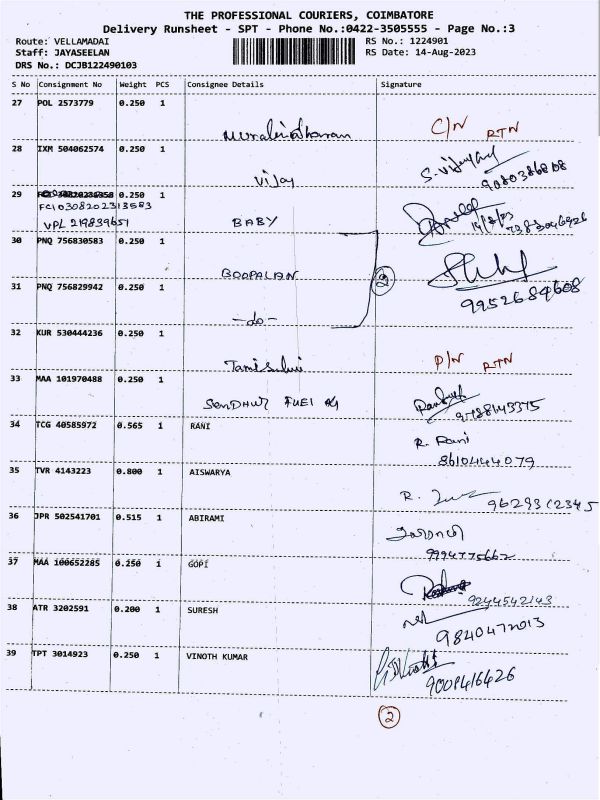 THE PROFESSIONAL COURIERS, COIMBATORE
Delivery Runsheet - SPT - Phone No.:0422-3505555 - Page No.:3
Route: VELLAMADAI RS No.: 1224901
Staff: JAYASEELAN RS Date: 14-Aug-2023
DRS No.: DCJB122490103
S No Consignment No Weight PCS Consignee Details Signature
27 POL 2573779 0.250 1
C/N RTN
28 IXM 504062574 0.250 1
Vijay S. Vijay 9080386808
29 0.250 1
FC1030820231 3583
VPL 219839651 BABY 14/8/23
30 PNQ 756830583 0.250 1
GOOPALAN 2
31 PNQ 756829942 0.250 1 9952684608
-do-
32 KUR 530444236 0.250 1
D/N RTN
33 MAA 101970488 0.250 1
34 TCG 40585972 0.565 1 RANI
R. Rani
8610444079
35 TVR 4143223 0.800 1 AISWARYA
9629312345
36 JPR 502541701 0.515 1 ABIRAMI
9994775662
37 MAA 100652285 0.250 1 GOPI
9244542143
38 ATR 3202591 0.200 1 SURESH
9840472013
39 TPT 3014923 0.250 1 VINOTH KUMAR
9009416426
2